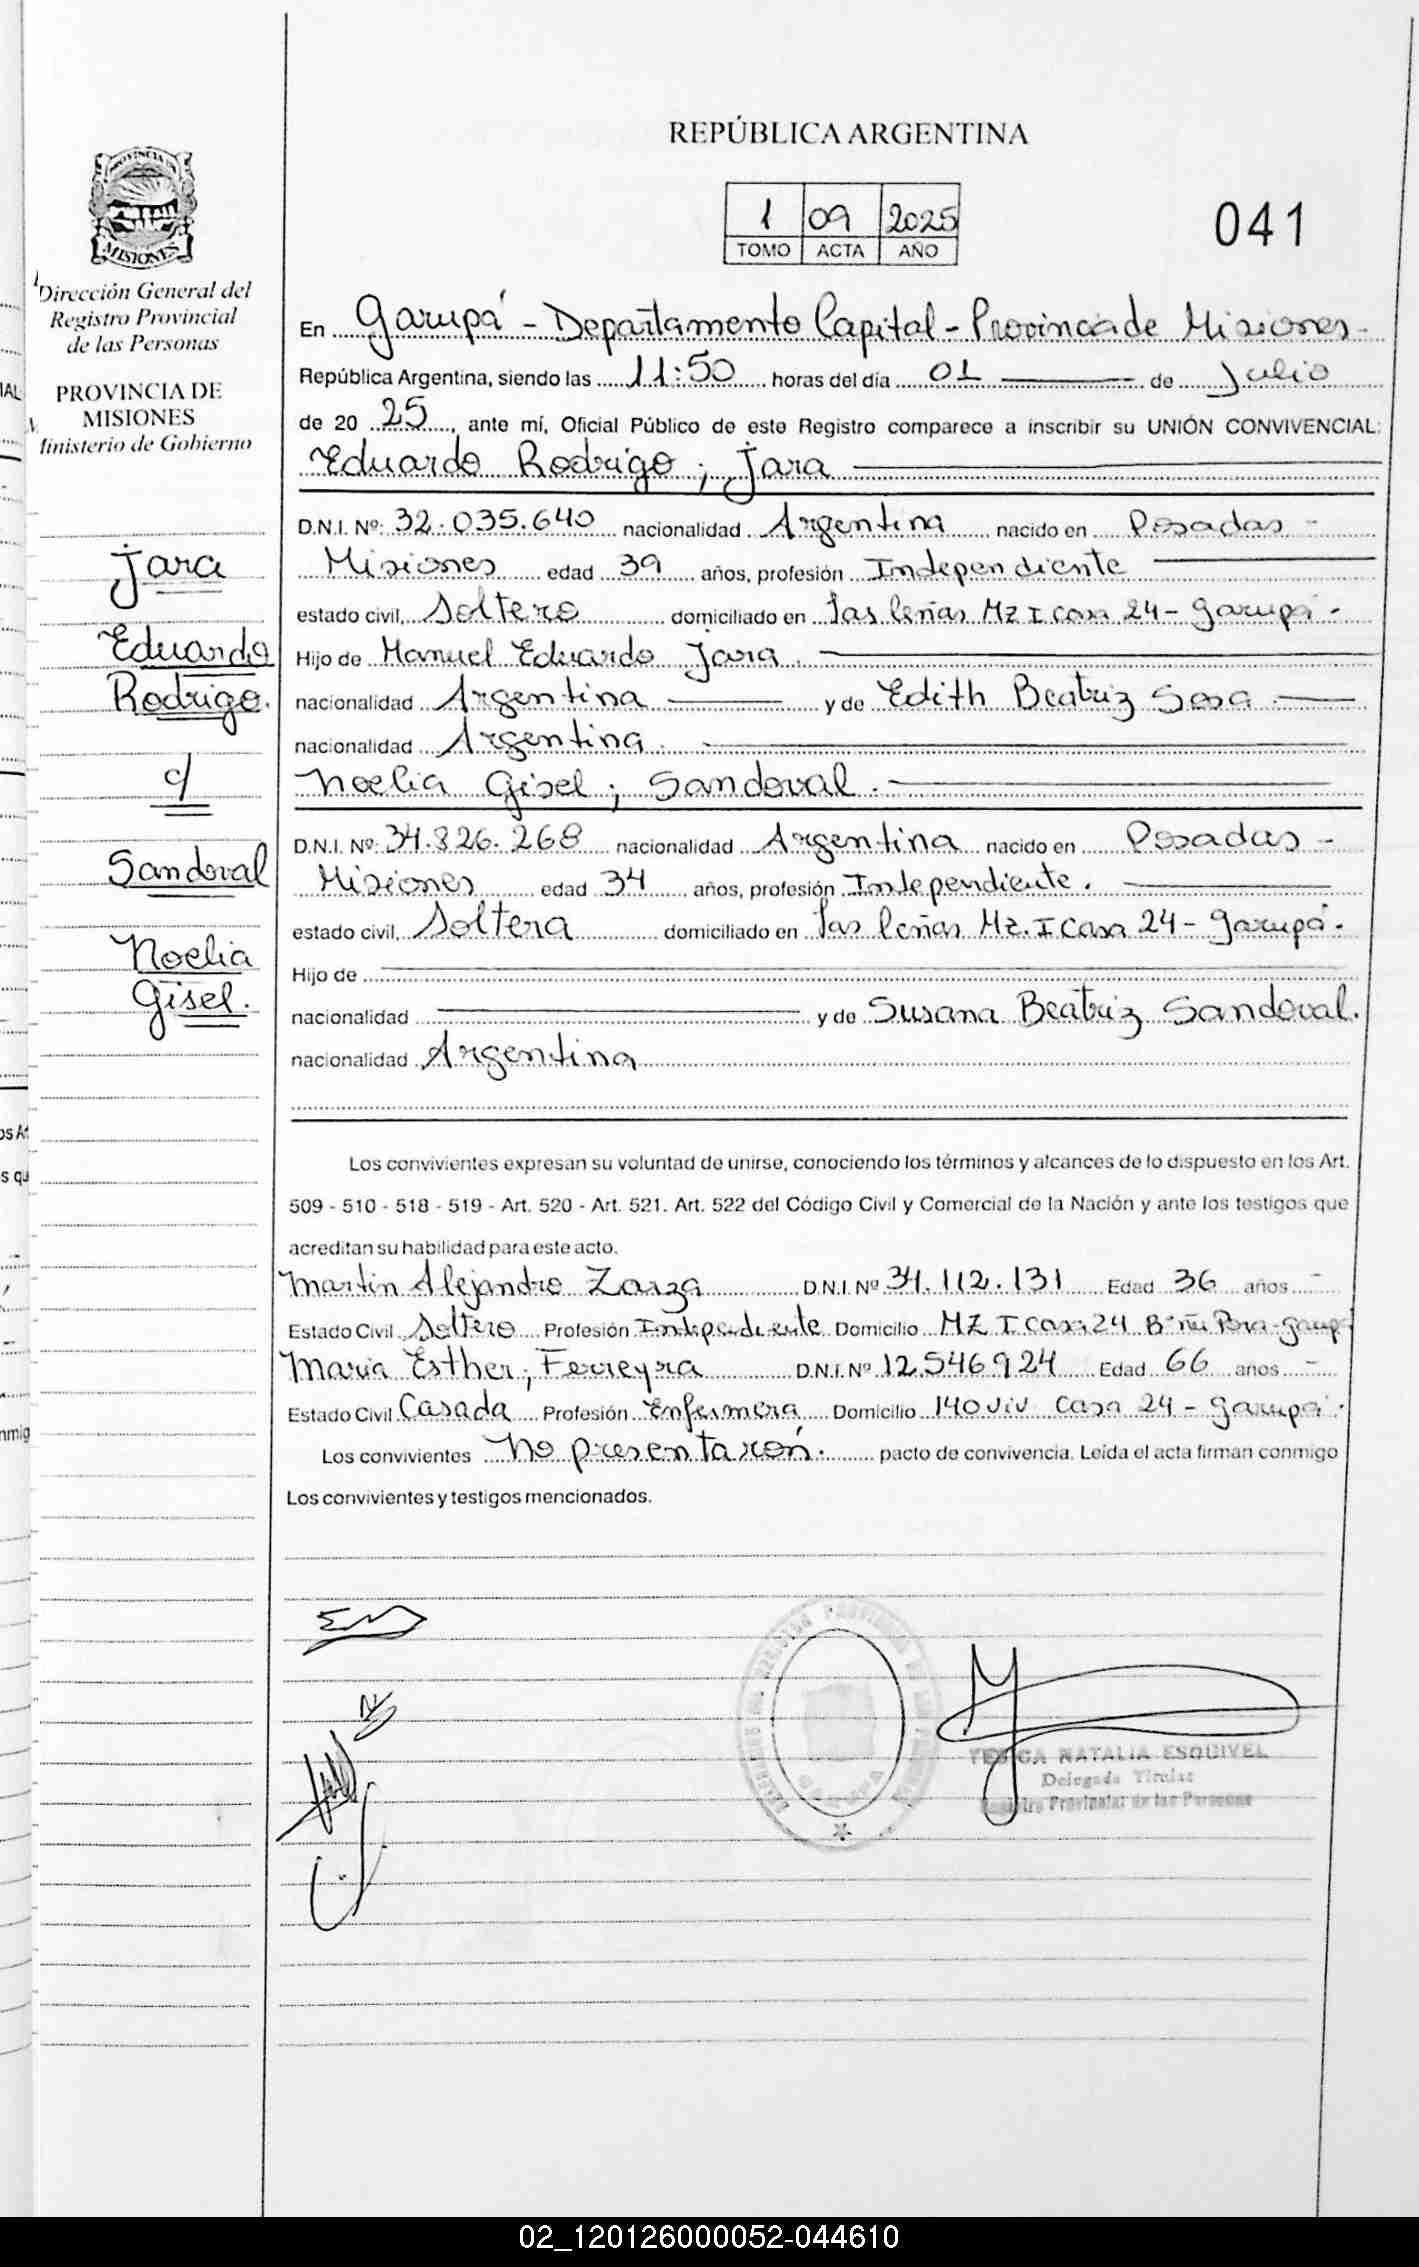 REPÚBLICA ARGENTINA
1 09 2025
TOMO ACTA AÑO
041
PROVINCIA DE
MISIONES
Dirección General del
Registro Provincial
de las Personas
PROVINCIA DE
MISIONES
Ministerio de Gobierno
Jara
Eduardo
Rodrigo.
c/
Sandoval
Noelia
Gisel.
En Garupá - Departamento Capital - Provincia de Misiones -
República Argentina, siendo las 11:50 horas del día 01 de Julio
de 2025, ante mí, Oficial Público de este Registro comparece a inscribir su UNIÓN CONVIVENCIAL:
Eduardo Rodrigo; Jara
D.N.I. Nº: 32.035.640 nacionalidad Argentina nacido en Posadas -
Misiones edad 39 años, profesión Independiente
estado civil, Soltero domiciliado en las leñas Mz I casa 24 - Garupá -
Hijo de Manuel Eduardo Jara
nacionalidad Argentina y de Edith Beatriz Sosa
nacionalidad Argentina.
Noelia Gisel; Sandoval.
D.N.I. Nº: 34.826.268 nacionalidad Argentina nacido en Posadas -
Misiones edad 34 años, profesión Independiente.
estado civil, Soltera domiciliado en las leñas Mz. I casa 24 - Garupá.
Hijo de
nacionalidad y de Susana Beatriz Sandoval.
nacionalidad Argentina
Los convivientes expresan su voluntad de unirse, conociendo los términos y alcances de lo dispuesto en los Art.
509 - 510 - 518 - 519 - Art. 520 - Art. 521. Art. 522 del Código Civil y Comercial de la Nación y ante los testigos que
acreditan su habilidad para este acto.
Martin Alejandro Zarza D.N.I. Nº 34.112.131 Edad 36 años -
Estado Civil Soltero Profesión Independiente Domicilio MZ I casa 24 Bº Ñu Pora - Garup
Maria Esther; Ferreyra D.N.I. Nº 12.546.924 Edad 66 anos -
Estado Civil Casada Profesión Enfermera Domicilio 140 viv casa 24 - Garupá.
Los convivientes No presentaron. pacto de convivencia. Leída el acta firman conmigo
Los convivientes y testigos mencionados.
NATALIA ESQUIVEL
Delegada Titular
Registro Provincial de las Personas
02_120126000052-044610